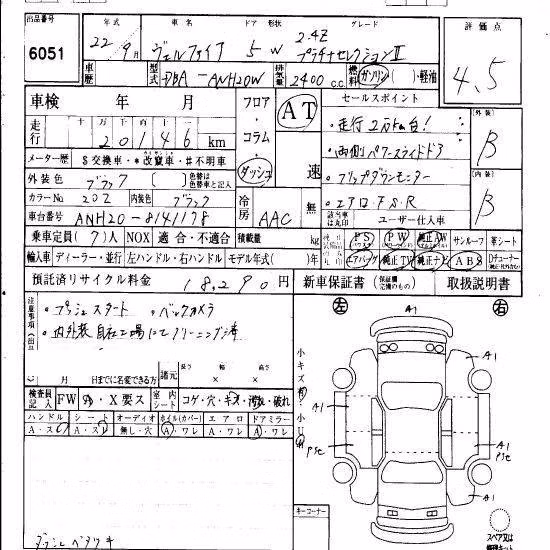 出品番号 年式 車名 ドア 形状 グレード 評価点
6051 22年 9月 ヴェルファイア 5 W 2.4Z プラチナセレクションⅡ 4.5
車歴 型式 DBA-ANH20W 排気量 2400 c.c. 燃料 ガソリン( )・軽油
車検 年 月 フロア・コラム・ダッシュ AT 速 セールスポイント 外装 B
走行 十 万 千 百 十 一 20146 km ・走行2万km台!
メーター歴 $交換車・*改竄車・#不明車 ・両側パワースライドドア
外装色 ブラック (色替は色替車と記入) ・フリップダウンモニター 内装 B
カラーNo 202 内装色 ブラック 冷房 AAC 無 ・エアロ F S R
車台番号 ANH20-8141178 該当車は丸印 ユーザー仕入車
乗車定員 (7)人 NOX 適合・不適合 積載量 kg PS PW 純正AW サンルーフ 革シート
輸入車 ディーラー・並行 左ハンドル・右ハンドル モデル年式( )年 エアバッグ 純正TV 純正ナビ ABS Dチューナー
預託済リサイクル料金 18,290円 新車保証書 取扱説明書
注意事項 ・プッシュスタート ・バックカメラ 左 A1 右
・内外装自社工場にてクリーニング済
月 日までに名変できる方 諸元 長さ × 幅 × 高さ
検査員記入 FW A・X要ス 室内シート コゲ・穴・キズ・汚れ・破れ
ハンドル シート オーディオ ホイル(カバー) エアロ ドアミラー
A・スレ A・スレ 無し・穴 A・ワレ A・ワレ A・ワレ
小キズ 小U
A1
A1
A1
A1
A1
キーコーナー
スペア又は
修理キット